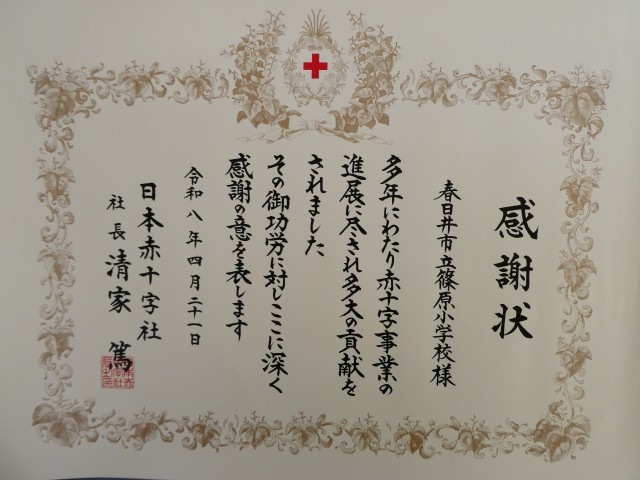 感謝状
春日井市立篠原小学校様
多年にわたり赤十字事業の
進展に尽され多大の貢献を
されました
その御功労に対しここに深く
感謝の意を表します
令和八年四月二十一日
日本赤十字社
社長 清家 篤